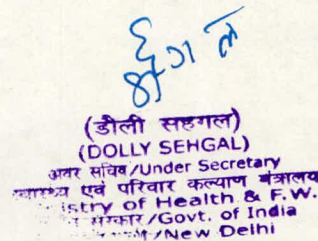 (डौली सहगल)
(DOLLY SEHGAL)
अवर सचिव/Under Secretary
स्वास्थ्य एवं परिवार कल्याण मंत्रालय
istry of Health & F.W.
सरकार/Govt. of India
/New Delhi